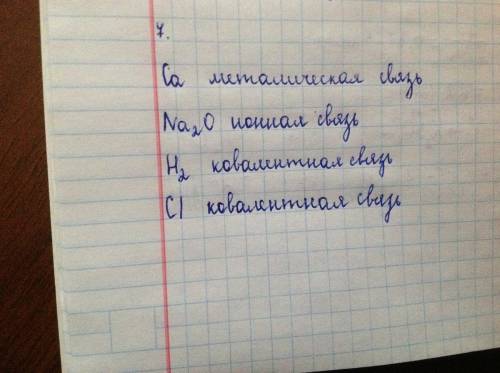 7.
Ca металическая связь
Na₂O ионная связь
H₂ ковалентная связь
Cl ковалентная связь